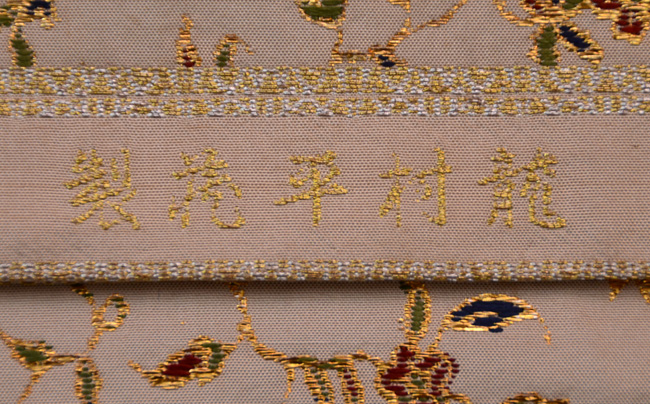 龍村平蔵製